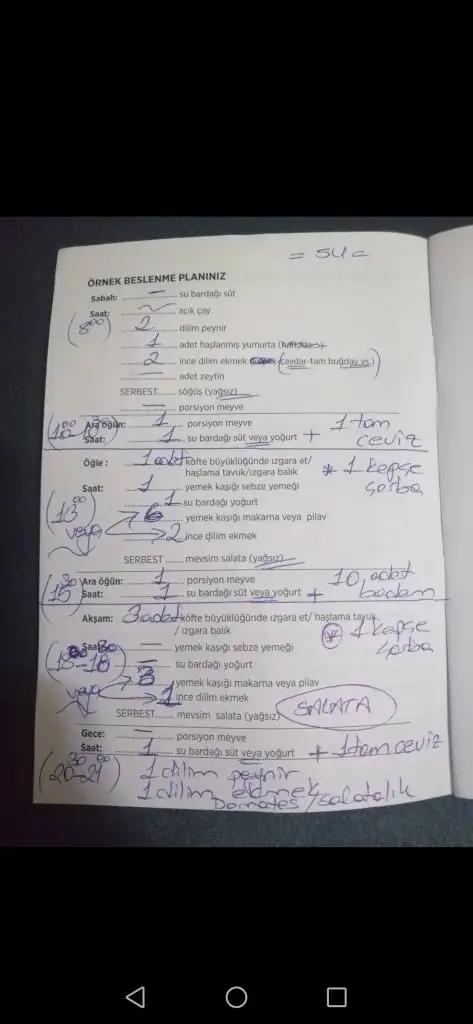 = su =
ÖRNEK BESLENME PLANINIZ
Sabah: — su bardağı süt
Saat: açık çay
(8⁰⁰) 2 dilim peynir
1 adet haşlanmış yumurta
2 ince dilim ekmek (çavdar-tam buğday vs.)
— adet zeytin
SERBEST söğüş (yağsız)
— porsiyon meyve
Ara öğün: 1 porsiyon meyve
Saat: 1 su bardağı süt veya yoğurt + 1 tam ceviz
Öğle : 1 adet köfte büyüklüğünde ızgara et/
haşlama tavuk/ızgara balık * 1 kepçe çorba
Saat: 1 yemek kaşığı sebze yemeği
(13⁰⁰) 1 su bardağı yoğurt
veya 6 yemek kaşığı makarna veya pilav
2 ince dilim ekmek
SERBEST mevsim salata (yağsız)
Ara öğün: 1 porsiyon meyve
(15³⁰) Saat: 1 su bardağı süt veya yoğurt + 10 adet badem
Akşam: 3 adet köfte büyüklüğünde ızgara et/ haşlama tavuk
/ ızgara balık * 1 kepçe çorba
Saat: — yemek kaşığı sebze yemeği
— su bardağı yoğurt
veya 3 yemek kaşığı makarna veya pilav
1 ince dilim ekmek
SERBEST mevsim salata (yağsız) SALATA
Gece: — porsiyon meyve
Saat: 1 su bardağı süt veya yoğurt + 1 tam ceviz
(20³⁰-21⁰⁰) 1 dilim peynir
1 dilim ekmek
Domates/salatalık